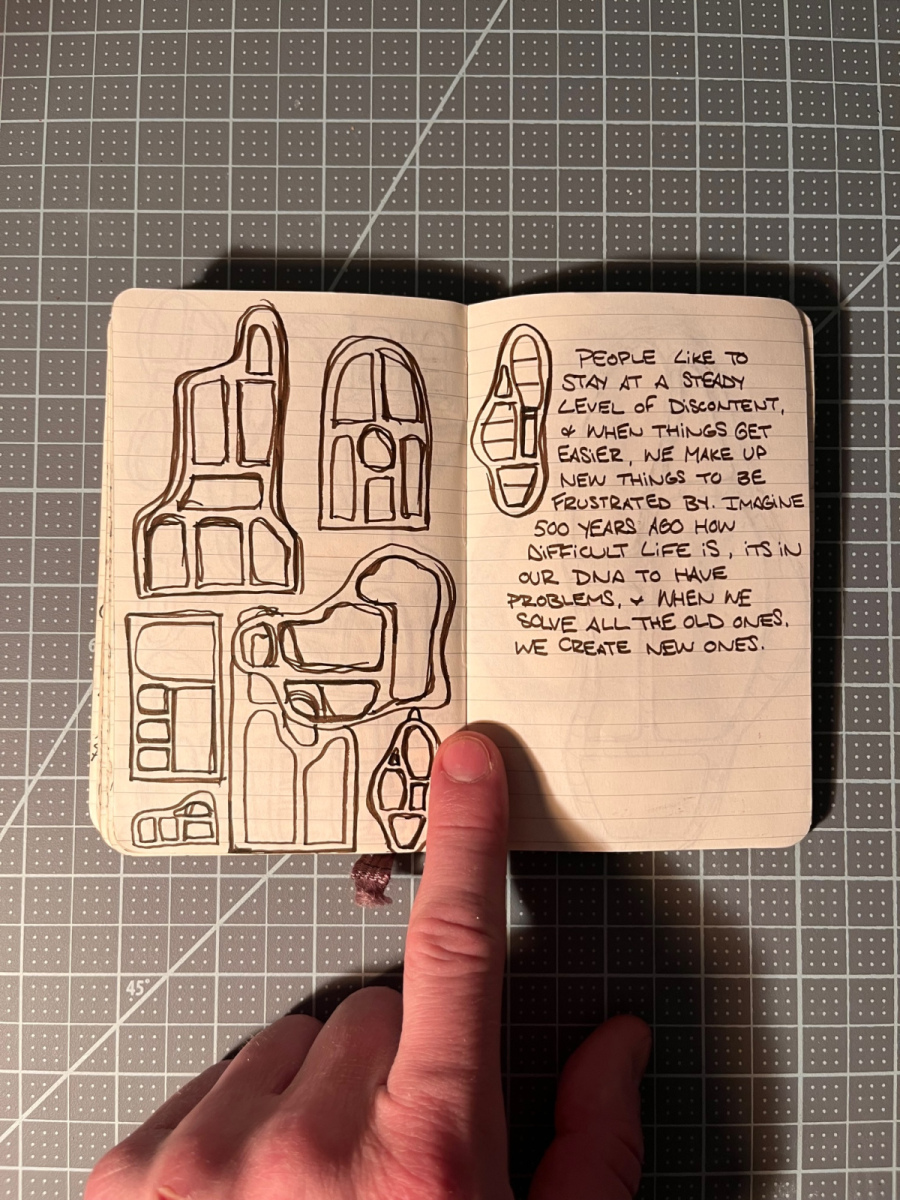 PEOPLE LIKE TO
STAY AT A STEADY
LEVEL OF DISCONTENT,
& WHEN THINGS GET
EASIER, WE MAKE UP
NEW THINGS TO BE
FRUSTRATED BY. IMAGINE
500 YEARS AGO HOW
DIFFICULT LIFE IS, ITS IN
OUR DNA TO HAVE
PROBLEMS, & WHEN WE
SOLVE ALL THE OLD ONES,
WE CREATE NEW ONES.
45°